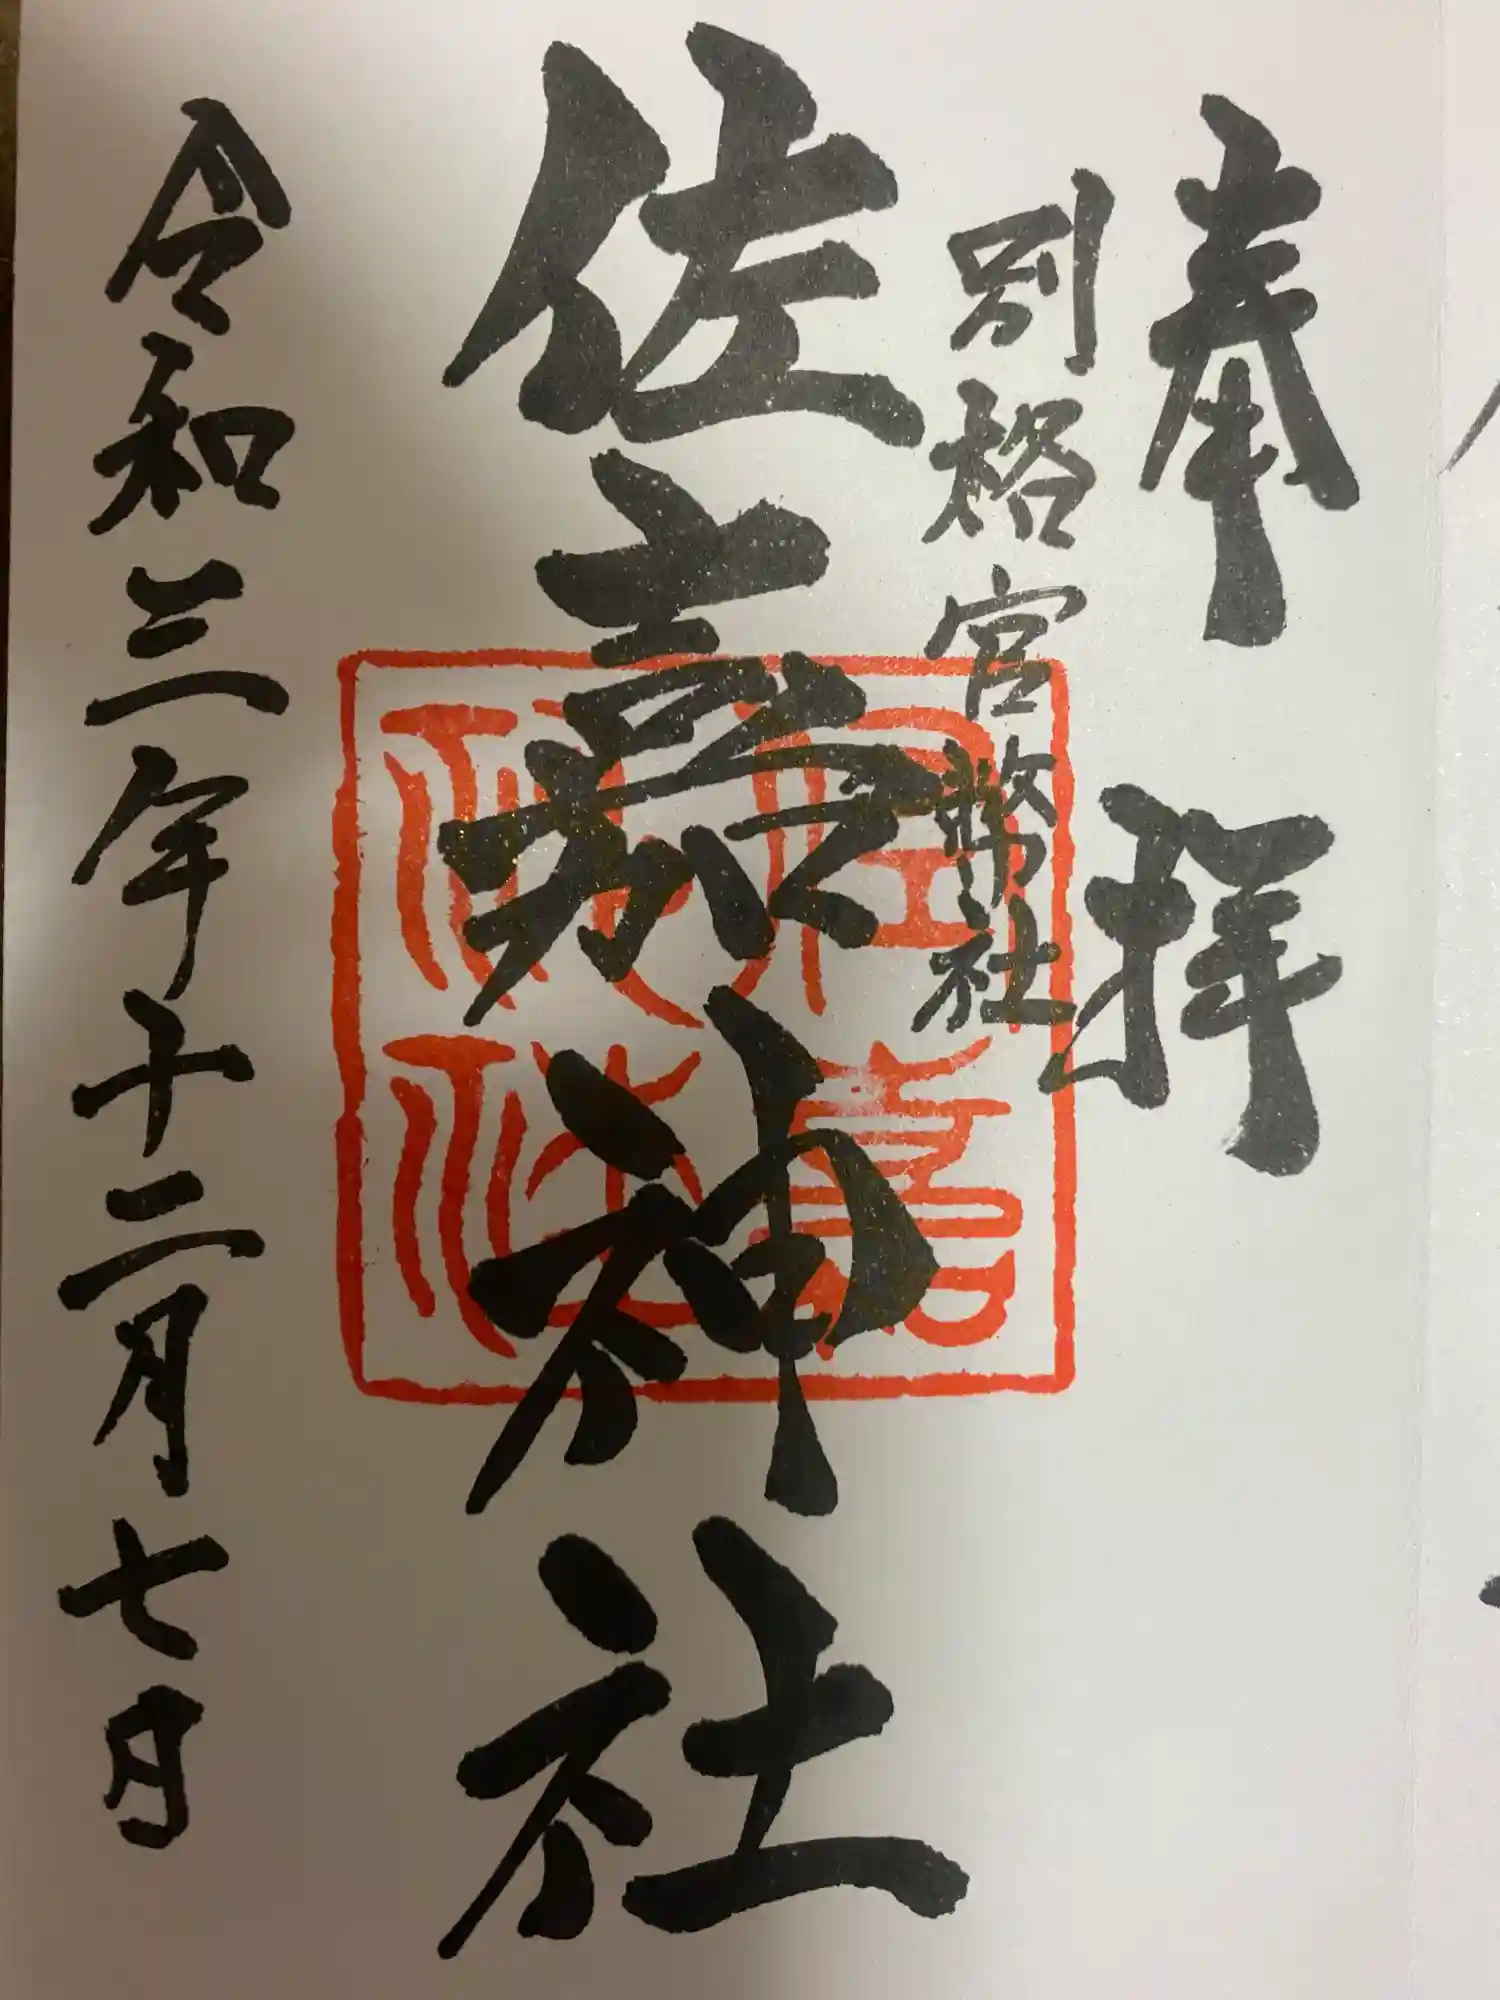 奉拝
別格官幣社
佐嘉神社
佐嘉
神社
令和三年十二月七日